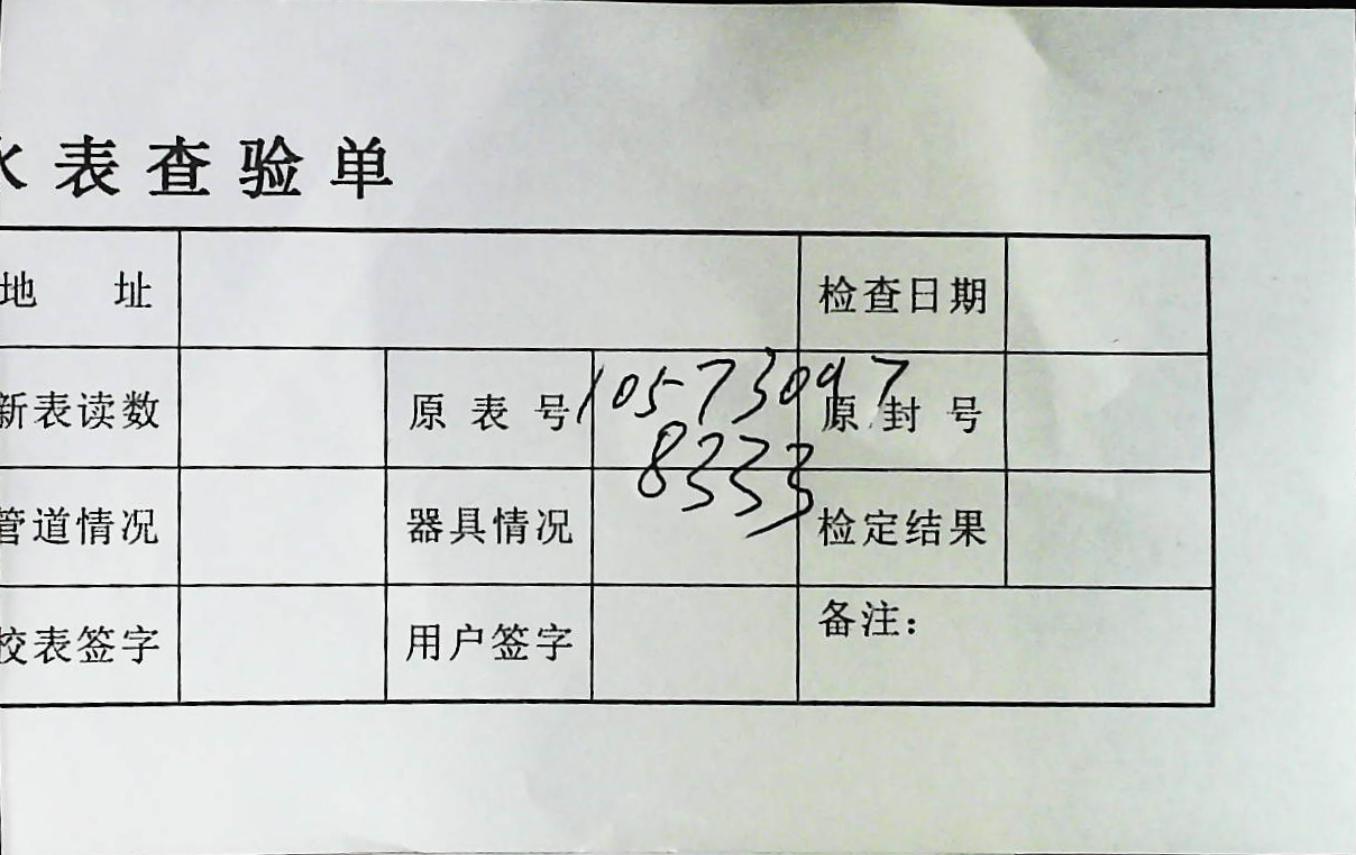 水表查验单
地 址 检查日期
新表读数 原表号 10573097 原封号
8333
管道情况 器具情况 检定结果
校表签字 用户签字 备注：